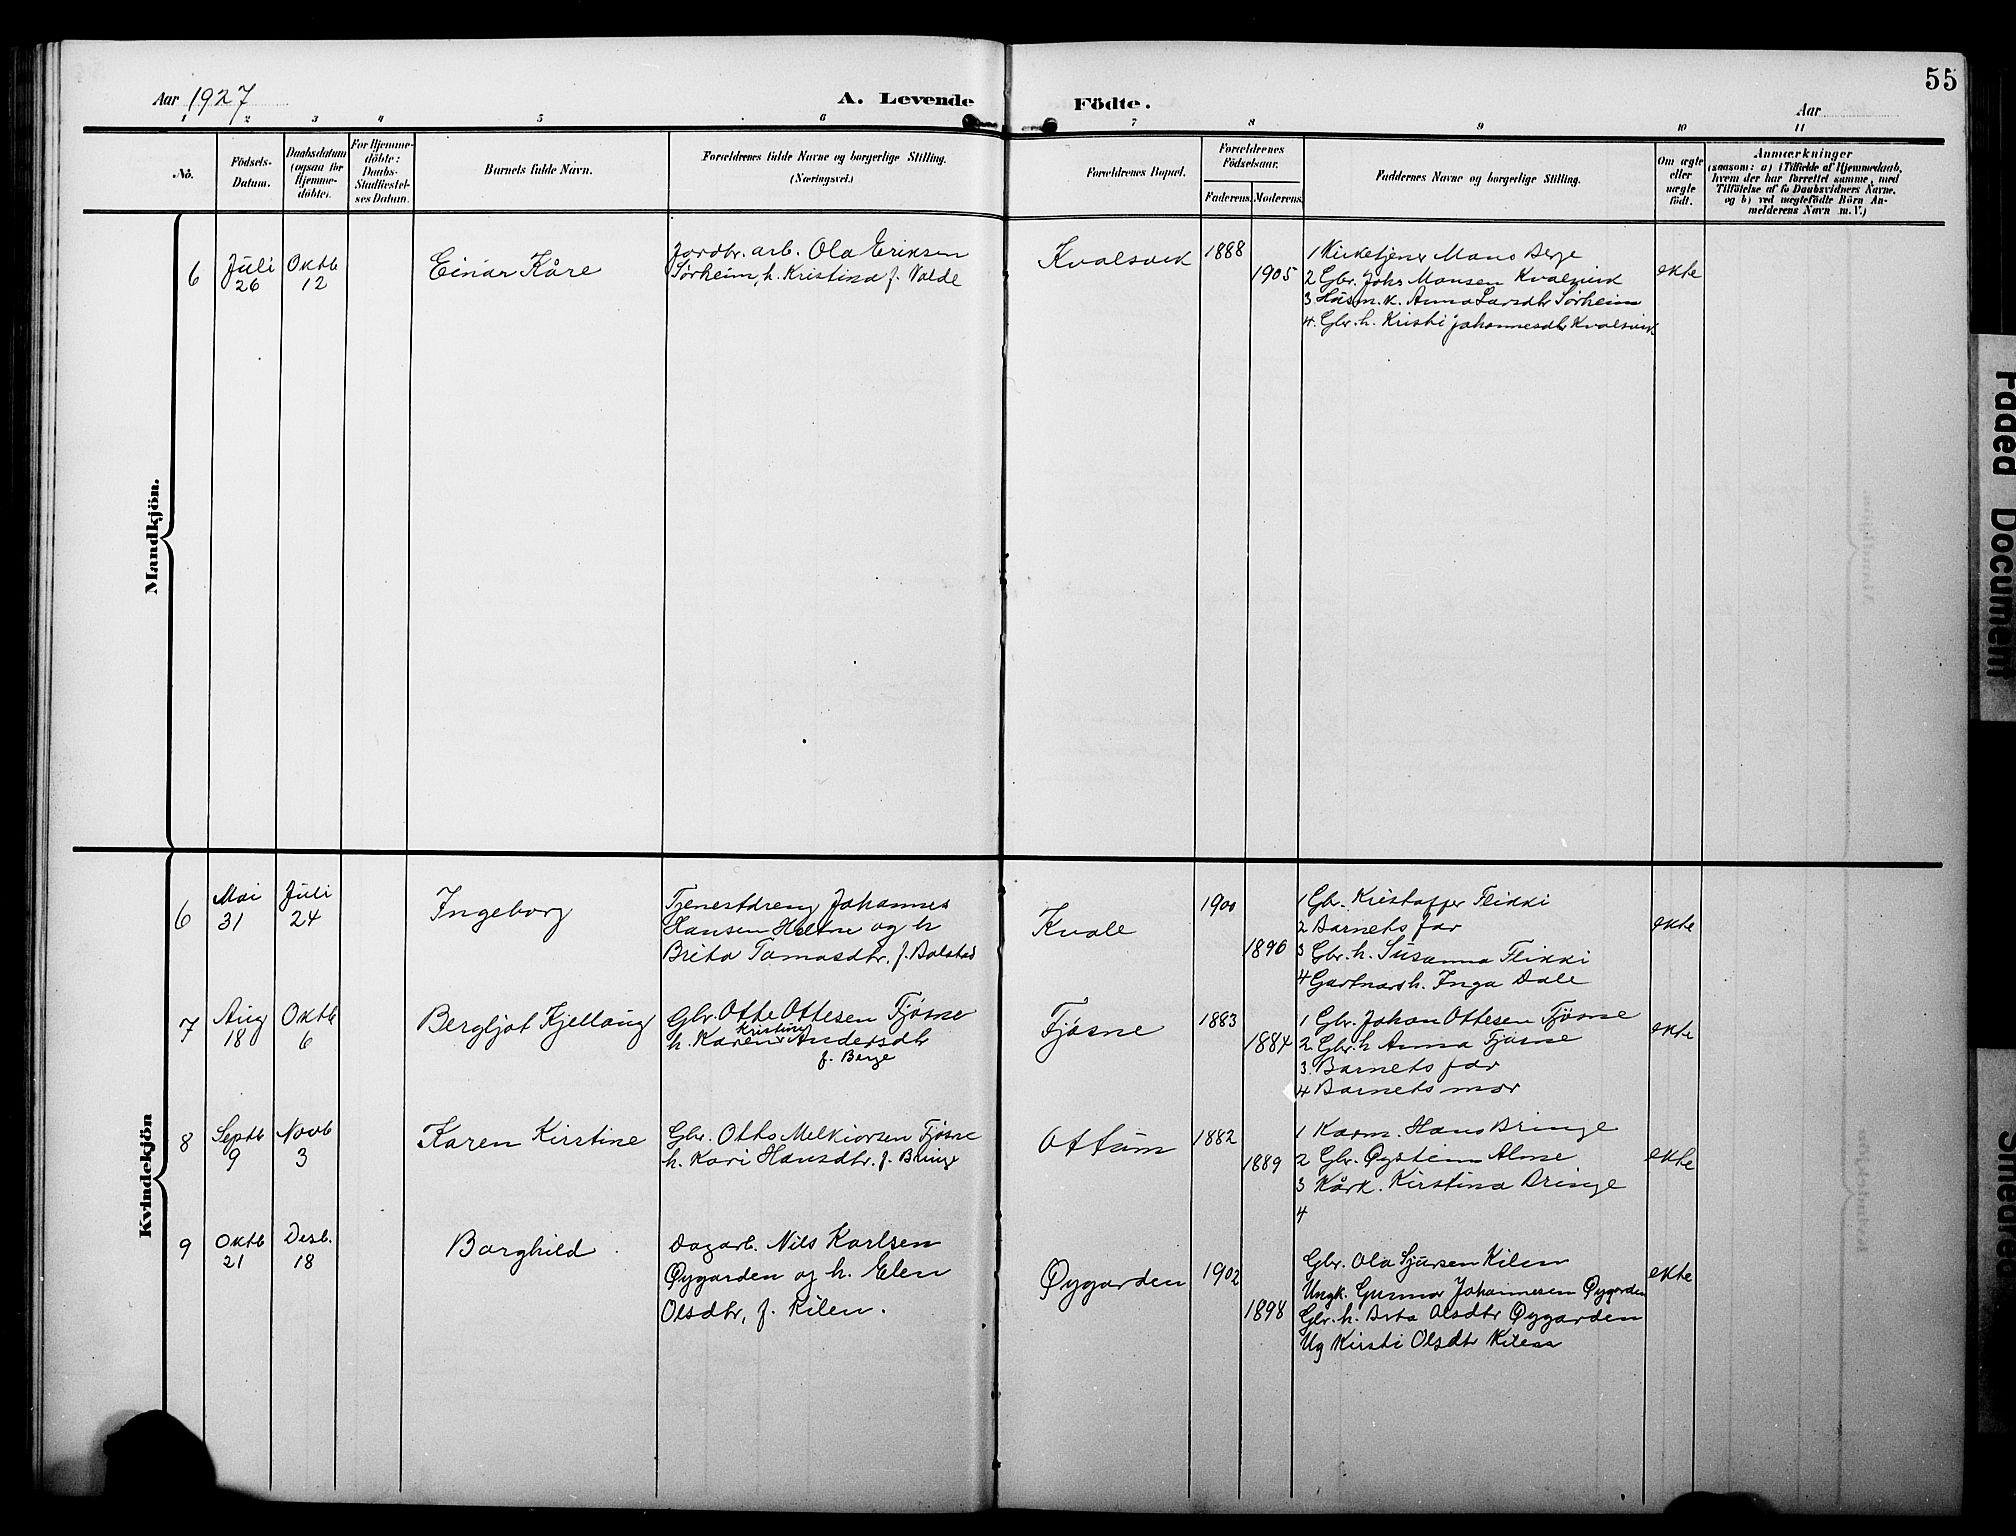 55
Aar 1927
A. Levende
Födte.
Aar
1 2 3 4 5 6 7 8 9 10 11
No.
Födsels-
Datum.
Daabsdatum
(ogsaa for
Hjemme-
döbte).
For Hjemme-
döbte:
Daabs-
Stadfæstel-
ses Datum.
Barnets fulde Navn.
Forældrenes fulde Navne og borgerlige Stilling.
(Næringsvei.)
Forældrenes Bopæl.
Forældrenes
Födselsaar.
Faderens. Moderens.
Faddernes Navne og borgerlige Stilling.
Om ægte
eller
uægte
födt.
Anmærkninger
(saasom: a) i Tilfælde af Hjemmedaab,
hvem der har forrettet samme, med
Tilföielse af to Daabsvidners Navne.
og b) ved uægtefödte Börn An-
melderens Navn m. V.)
Mandkjön.
6
Juli
26
Oktb
12
Einar Kåre
Jordbr. arb. Ola Eriksen
Sørheim, h. Kristina f. Valde
Kvalsvik
1888
1905
1 Kirketjener Mons Berge
2 Gbr. Johs Monsen Kvalsvik
3. Husm. k. Anna Larsdtr Sørheim
4. Gbr. h. Kristi Johannesdtr Kvalsvik
ekte
Kvindekjön
6
Mai
31
Juli
24
Ingeborg
Tjenestdreng Johannes
Hansen Heltne og h
Brita Tomasdtr. f. Bolstad
Kvale
1900
1896
1 Gbr. Kristoffer Flikki
2 Barnets far
3 Gbr. h. Susanna Flikki
4 Gartnarsh. Inga Dale
ekte
7
Aug
18
Oktb
6
Bergljot Kjellaug
Gbr. Otte Ottesen Fjøsne
h. Karen Kristine Andersdtr
f. Berge
Fjøsne
1883
1884
1 Gbr. Johan Ottesen Fjøsne
2 Gbr. h Anna Fjøsne
3. Barnets far
4 Barnets mor
ekte
8
Septb
9
Novb
3
Karen Kirstine
Gbr. Otto Melkiorsen Fjøsne
h. Kari Hansdtr. f. Bringe
Ottum
1882
1889
1 Kaarm. Hans Bringe
2 Gbr. Øystein Alme
3 Kårk. Kirstina Bringe
4
ekte
9
Oktb
21
Desb.
18
Borghild
Dagarb. Nils Karlsen
Øygarden og h. Elen
Olsdtr, f. Kilen.
Øygarden
1902
1898
Gbr. Ola Sjursen Kilen
Ungk. Gunnar Johannesen Øygarden
Gbr. h. Brita Olsdtr Øygarden
Ug Kirsti Olsdtr Kilen
ekte
Faded Document
Smeared